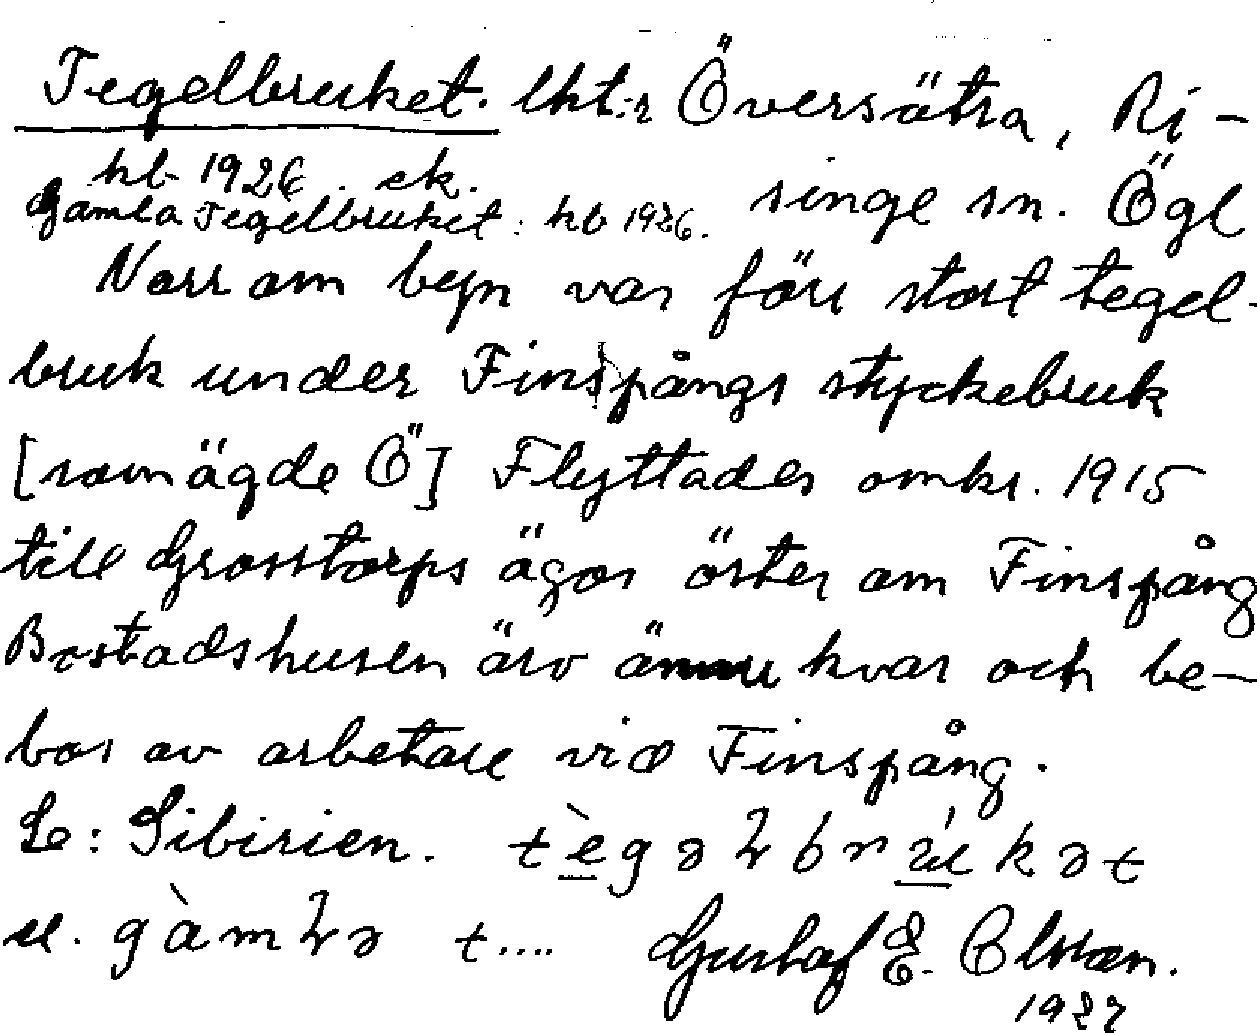 Tegelbruket. lht:r Översätra, Ri-
hb 1926. ek. singe sn. Ögl
Gamla Tegelbruket: hb 1926.
Norr om byn var förr stort tegel-
bruk under Finspångs styckebruk
[som ägde Ö] Flyttades omkr. 1915
till Grosstorps ägor öster om Finspång
Bostadshusen äro ännu kvar och be-
bos av arbetare vid Finspång.
Se: Sibirien. tègəɫbrúkət
u. gàmɫə t....
Gustaf E. Olsson.
1927